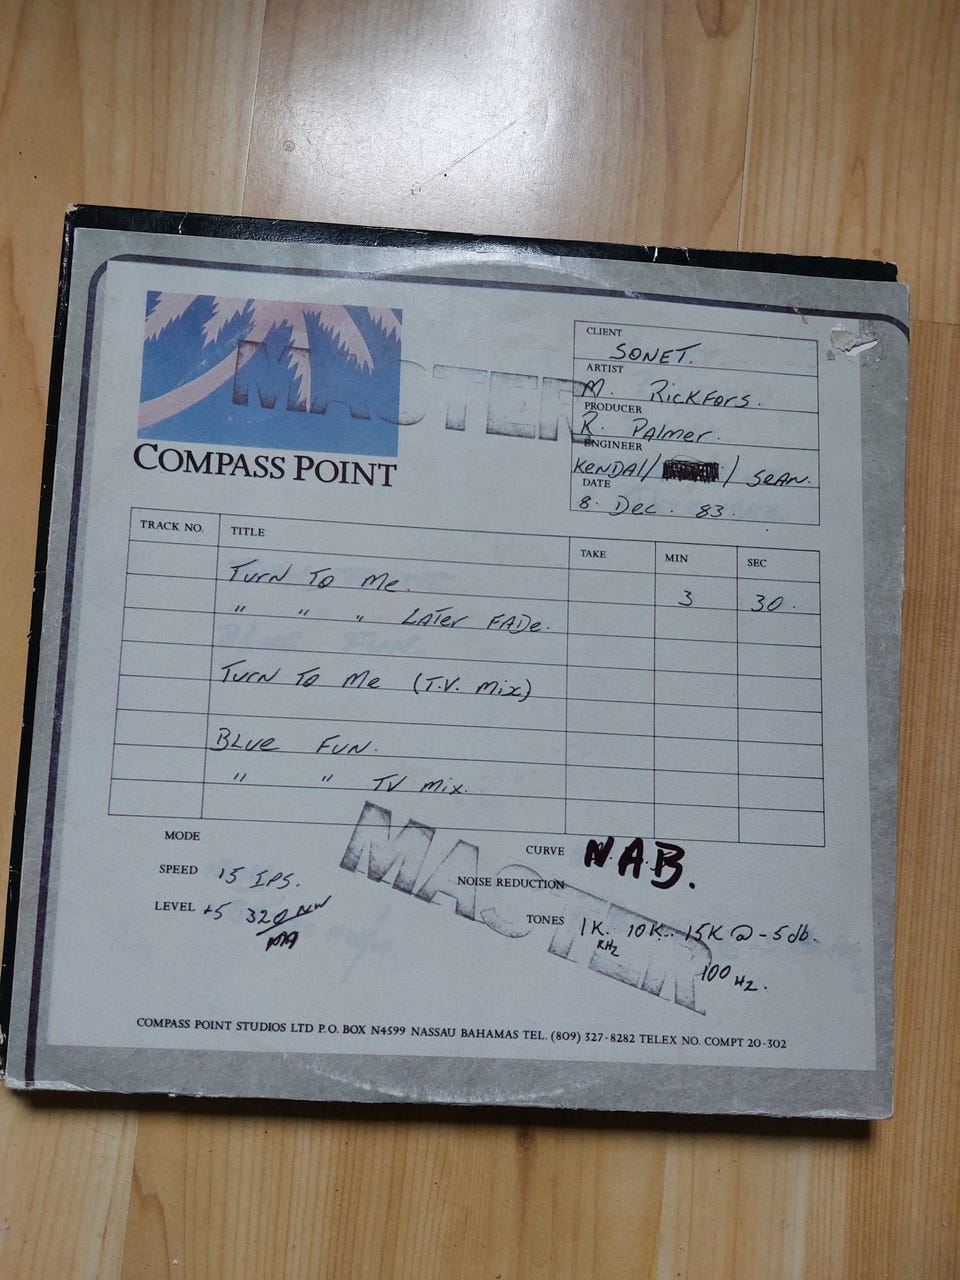 MASTER
COMPASS POINT
CLIENT SONET.
ARTIST M. RICKFORS.
PRODUCER R. PALMER.
ENGINEER KENDAL / / SEAN.
DATE 8. DEC. 83.
TRACK NO. TITLE TAKE MIN SEC
TURN TO ME. 3 30.
" " " LATER FADE.
TURN TO ME (T.V. MIX)
BLUE FUN.
" " TV MIX.
MASTER
MODE
CURVE N.A.B.
SPEED 15 IPS.
NOISE REDUCTION
LEVEL +5 320 NW
TONES 1K. 10K. 15K @ -5db.
100 Hz.
COMPASS POINT STUDIOS LTD P.O. BOX N4599 NASSAU BAHAMAS TEL. (809) 327-8282 TELEX NO. COMPT 20-302